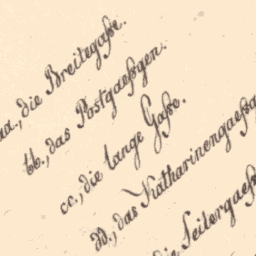 aa., die Breitegaße.
bb., das Postgaeßgen.
cc., die lange Gaße.
dd., das Katharinengaeßg
die Seilergaeß